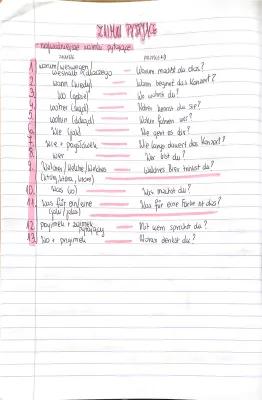 ZAIMKI PYTAJĄCE
najważniejsze zaimki pytające
ZAIMEK PRZYKŁAD
1. warum/weswegen Warum machst du das?
weshalb dlaczego
2. wann (kiedy) Wann beginnt das Konzert?
3. wo (gdzie) Wo wohnst du?
4. woher (skąd) Woher kennst du sie?
5. wohin (dokąd) Wohin fahren wir?
6. wie (jak) Wie geht es dir?
7. wie + przysłówek Wie lange dauert das Konzert?
8. wer Wer bist du?
9. Welcher/Welche/Welches Welches Bier trinkst du?
(który, która, które)
10. Was (co) Was machst du?
11. was für ein/eine Was für eine Farbe ist das?
12. przyimek + zaimek Mit wem sprichst du?
pytający
13. Wo + przyimek Woran denkst du?